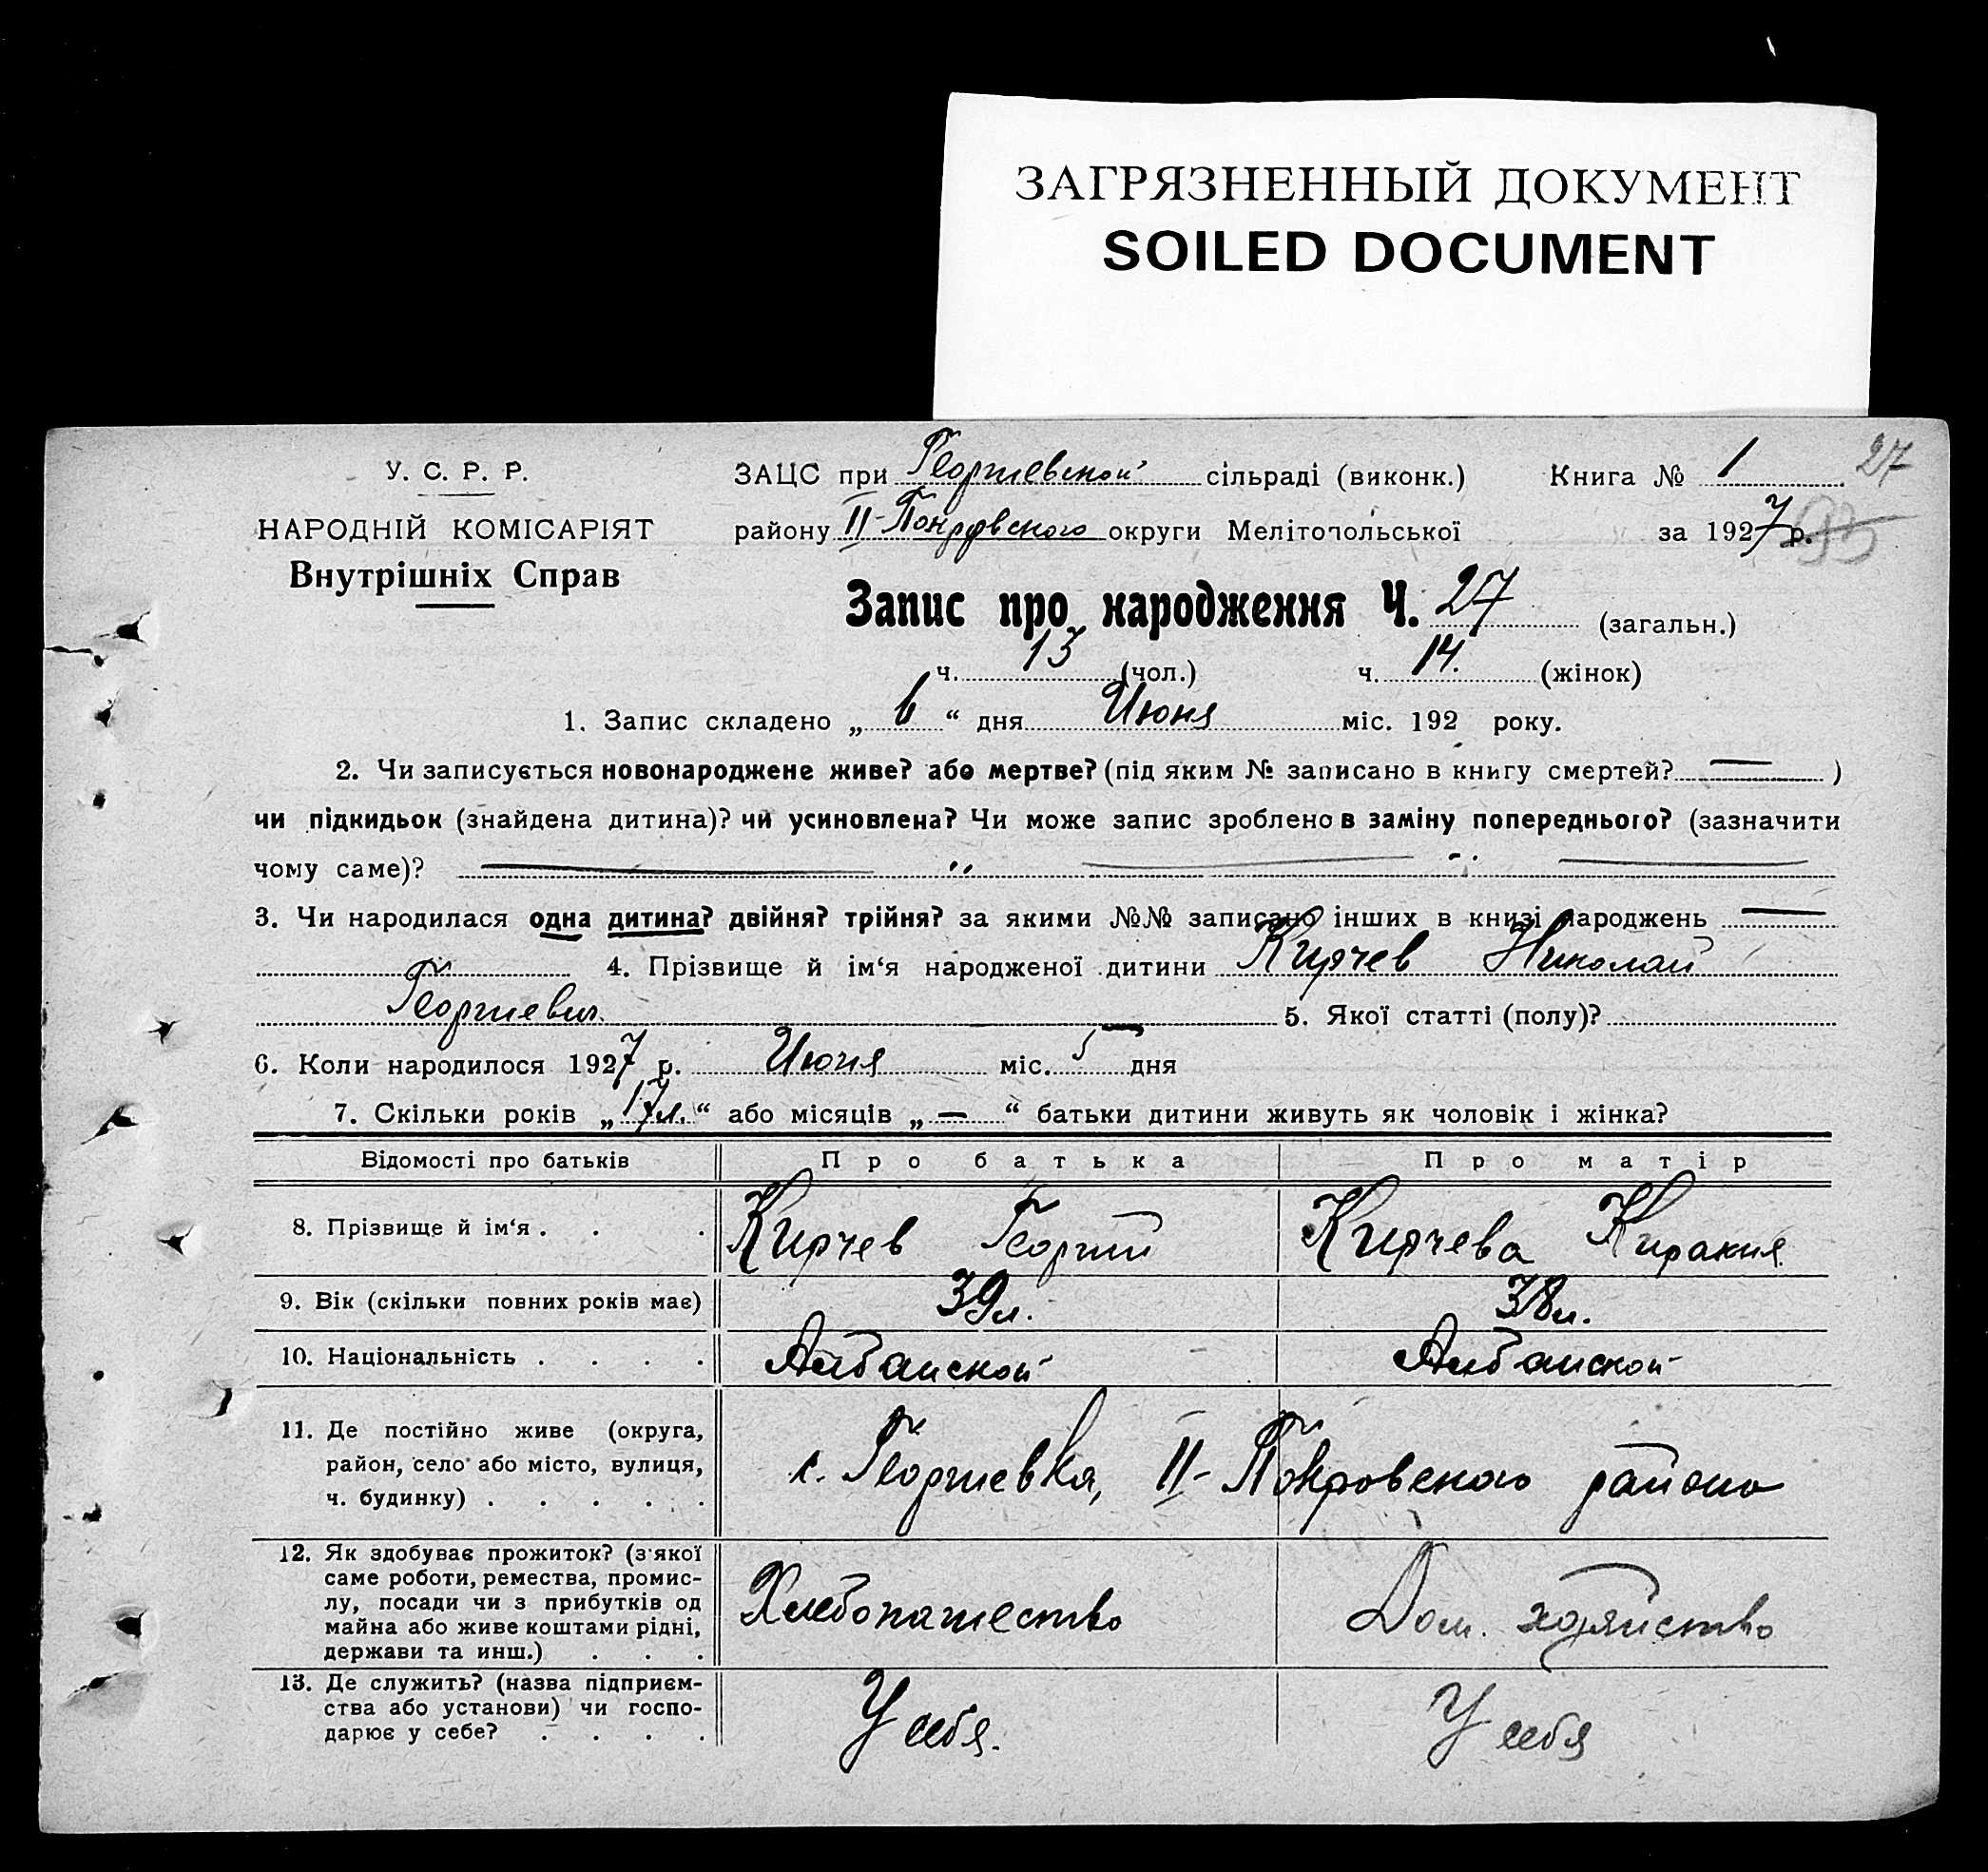 ЗАГРЯЗНЕННЫЙ ДОКУМЕНТ
SOILED DOCUMENT
27
У. С. Р. Р.
НАРОДНІЙ КОМІСАРІЯТ
Внутрішніх Справ
ЗАЦС при Георгиевской сільраді (виконк.) Книга № 1
району II-Покровского округи Мелітопольської за 1927 р. 93
Запис про народження Ч. 27 (загальн.)
ч. 13 (чол.) ч. 14. (жінок)
1. Запис складено „ 6 “ дня Июня міс. 192 року.
2. Чи записується новонароджене живе? або мертве? (під яким № записано в книгу смертей? — )
чи підкидьок (знайдена дитина)? чи усиновлена? Чи може запис зроблено в заміну попереднього? (зазначити
чому саме)? — „ — „ —
3. Чи народилася одна дитина? двійня? трійня? за якими №№ записано інших в книзі народжень —
4. Прізвище й ім‘я народженої дитини Кирчев Николай
Георгиевич. 5. Якої статті (полу)?
6. Коли народилося 1927 р. Июня міс. 5 дня
7. Скільки років „ 17 л. “ або місяців „ — “ батьки дитини живуть як чоловік і жінка?
Відомості про батьків Про батька Про матір
8. Прізвище й ім‘я . . . Кирчев Георгий Кирчева Киракия
9. Вік (скільки повних років має) 39 л. 38 л.
10. Національність . . . . Албанской Албанской
11. Де постійно живе (округа,
район, село або місто, вулиця,
ч. будинку) . . . . . с. Георгиевка, II-Покровского района
12. Як здобуває прожиток? (з якої
саме роботи, ремества, промис-
лу, посади чи з прибутків од
майна або живе коштами рідні,
держави та инш.) . . . Хлебопашество Дом. хозяйство
13. Де служить? (назва підприєм-
ства або установи) чи госпо-
дарює у себе? . . . . У себя. У себя